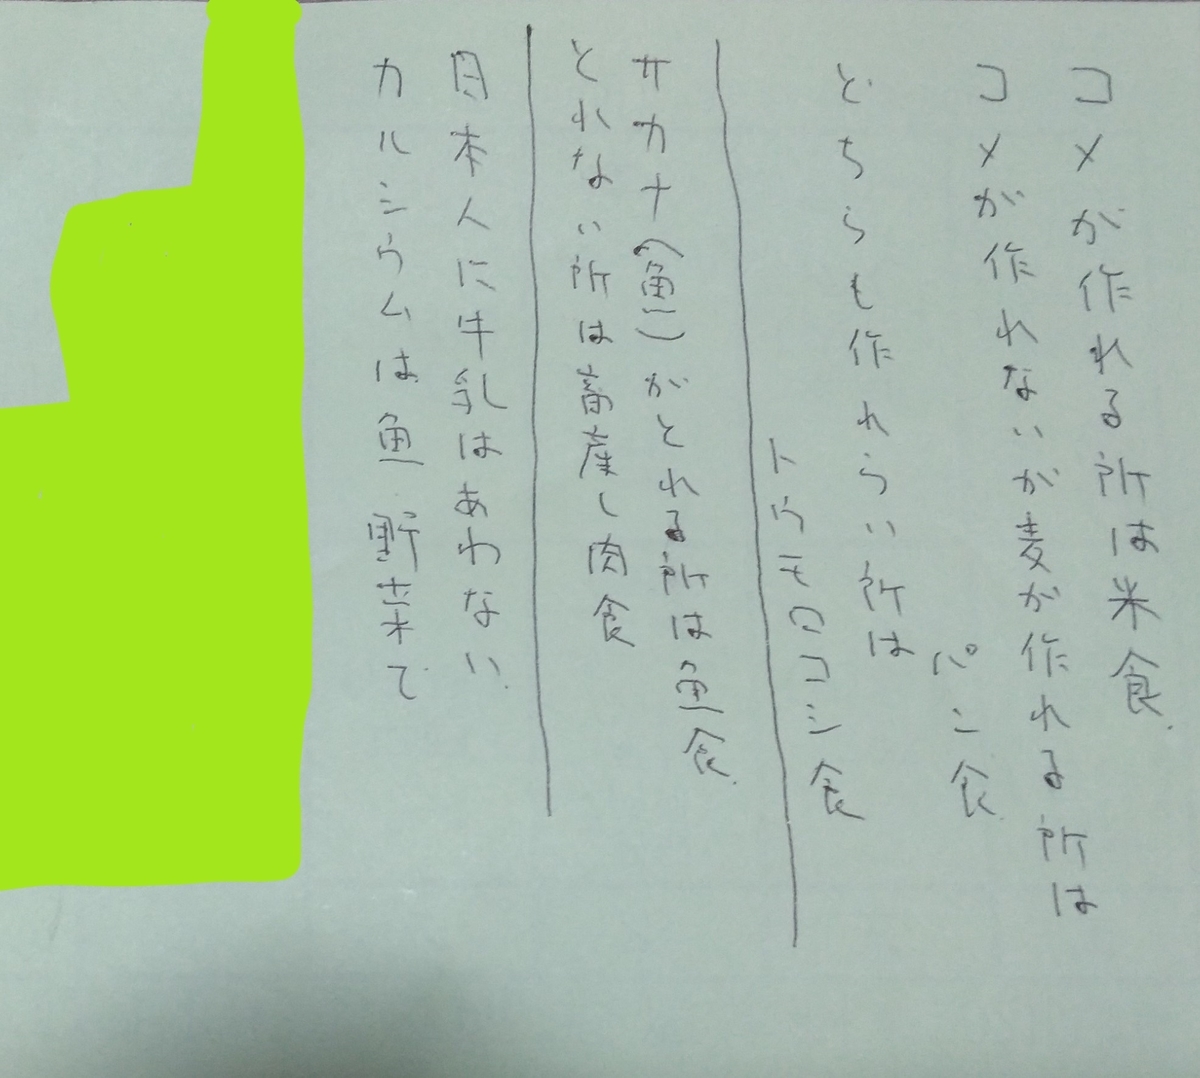 コメが作れる所は米食.
コメが作れないが麦が作れる所は
パン食
どちらも作れらい所は
トウモロコシ食
サカナ(魚)がとれる所は魚食.
とれない所は畜産し肉食
日本人に牛乳はあわない.
カルシウムは魚 野菜で